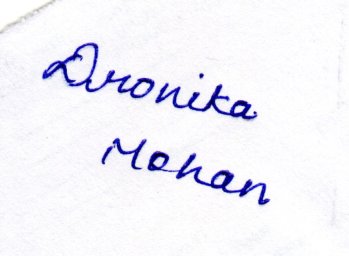 Dronika
Mohan